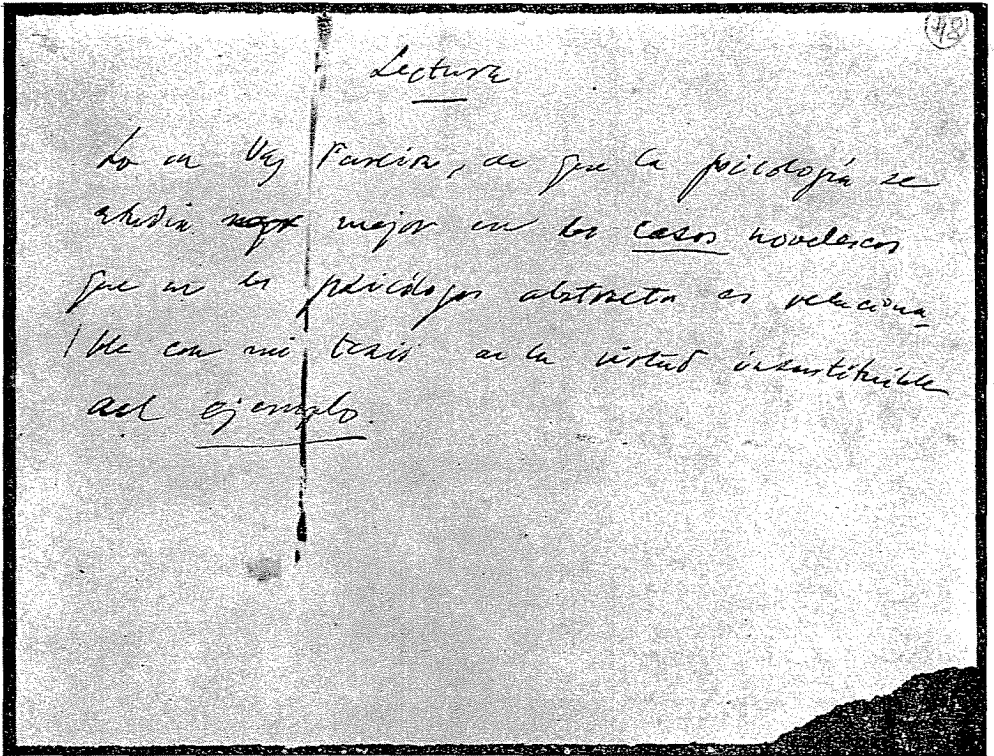 48
Lectura
Lo de Vaz Ferreira, de que la psicología se
estudia mejor en los casos novelescos
que en los psicólogos abstractos es relaciona-
ble con mi tesis de la virtud insustituible
del ejemplo.